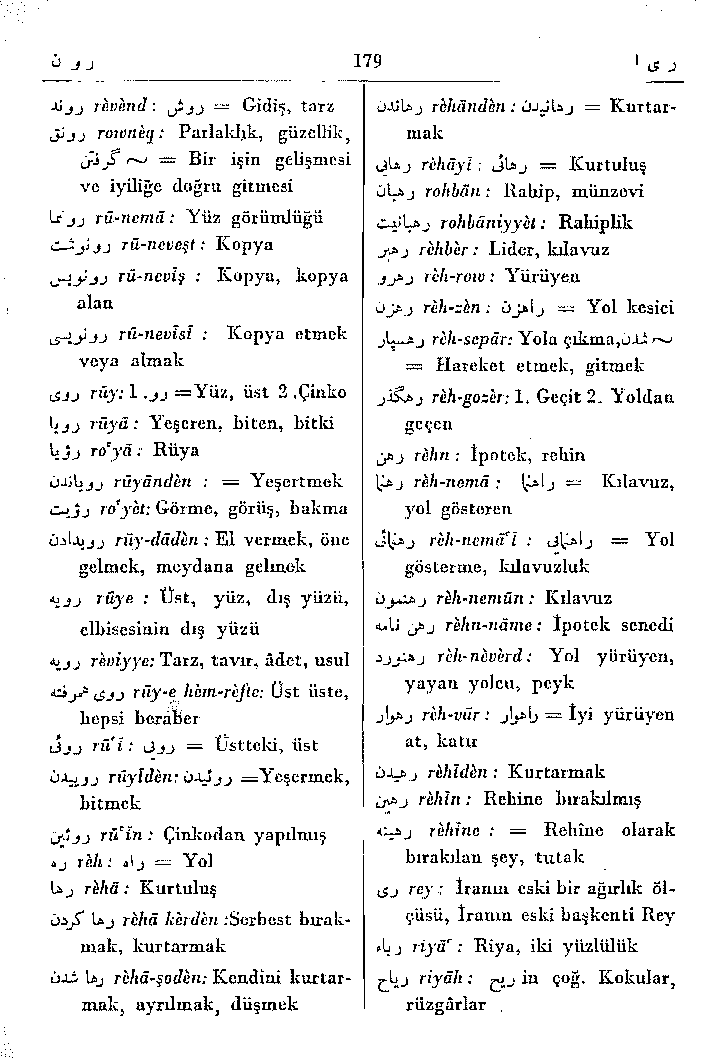 ر و ن
179
ر ی ا
روند rèvènd : روش = Gidiş, tarz
رونق rowneq : Parlaklık, güzellik,
~ گرفتن = Bir işin gelişmesi
ve iyiliğe doğru gitmesi
رونما rū-nemā : Yüz görümlüğü
رونوشت rū-neveşt : Kopya
رونویس rū-nevīş : Kopya, kopya
alan
رونویسی rū-nevīsī : Kopya etmek
veya almak
روی rūy: 1 .رو =Yüz, üst 2 .Çinko
رویا rūyā : Yeşeren, biten, bitki
رؤیا ro'yā : Rüya
رویاندن rūyāndèn : = Yeşertmek
رؤیت ro'yèt: Görme, görüş, bakma
رویدادن rūy-dādèn : El vermek, öne
gelmek, meydana gelmek
رویه rūye : Üst, yüz, dış yüzü,
elbisesinin dış yüzü
رویه rèviyye: Tarz, tavır, âdet, usul
روی همرفته rūy-e hèm-rèfte: Üst üste,
hepsi beraber
روئی rū'ī : روی = Üstteki, üst
روییدن rūyīdèn: روئیدن =Yeşermek,
bitmek
روئین rū'in : Çinkodan yapılmış
ره rèh : راه = Yol
رها rèhā : Kurtuluş
رها کردن rèhā kèrdèn :Serbest bırak-
mak, kurtarmak
رها شدن rèhā-şodèn: Kendini kurtar-
mak, ayrılmak, düşmek
رهاندن rèhāndèn : رهانیدن = Kurtar-
mak
رهایی rèhāyī : رهائی = Kurtuluş
رهبان rohbān : Rahip, münzevi
رهبانیت rohbāniyyèt : Rahiplik
رهبر rèhbèr : Lider, kılavuz
رهرو rèh-row : Yürüyen
رهزن rèh-zèn : راهزن = Yol kesici
رهسپار rèh-sepār: Yola çıkma,شدن ~
= Hareket etmek, gitmek
رهگذر rèh-gozèr: 1. Geçit 2. Yoldan
geçen
رهن rèhn : İpotek, rehin
رهنما rèh-nemā : راهنما = Kılavuz,
yol gösteren
رهنمائی rèh-nemā'ī : راهنمائی = Yol
gösterme, kılavuzluk
رهنمون rèh-nemūn : Kılavuz
رهن نامه rèhn-nāme : İpotek senedi
رهنورد rèh-nèvèrd : Yol yürüyen,
yayan yolcu, peyk
رهوار rèh-vār : راهوار = İyi yürüyen
at, katır
رهیدن rèhīdèn : Kurtarmak
رهین rèhīn : Rehine bırakılmış
رهینه rèhīne : = Rehîne olarak
bırakılan şey, tutak
ری rey : İranın eski bir ağırlık öl-
çüsü, İranın eski başkenti Rey
ریاء riyā' : Riya, iki yüzlülük
ریاح riyāh : ریح in çoğ. Kokular,
rüzgârlar